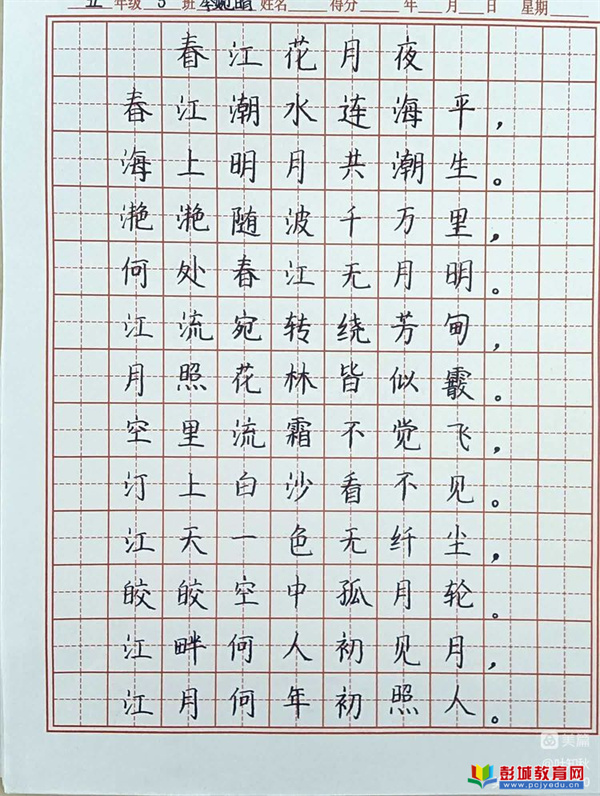 五年级 5 班 姓名 得分 年 月 日 星期
春江花月夜
春江潮水连海平，
海上明月共潮生。
滟滟随波千万里，
何处春江无月明。
江流宛转绕芳甸，
月照花林皆似霰。
空里流霜不觉飞，
汀上白沙看不见。
江天一色无纤尘，
皎皎空中孤月轮。
江畔何人初见月，
江月何年初照人。
美篇
彭城教育网
www.pcjyedu.cn